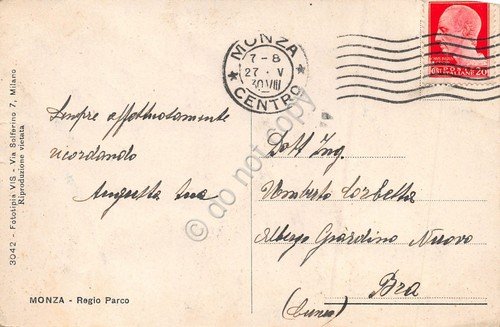 MONZA
7-8
27·V
30 VIII
CENTRO
POSTE ITALIANE 20
Sempre affettuosamente
ricordando
Augusta
Dott Ing.
Umberto Corbetta
Albergo Giardino Nuovo
Bra
(Cuneo)
3042 - Fototipia VIS - Via Solferino 7, Milano
Riproduzione vietata
MONZA - Regio Parco
do not copy